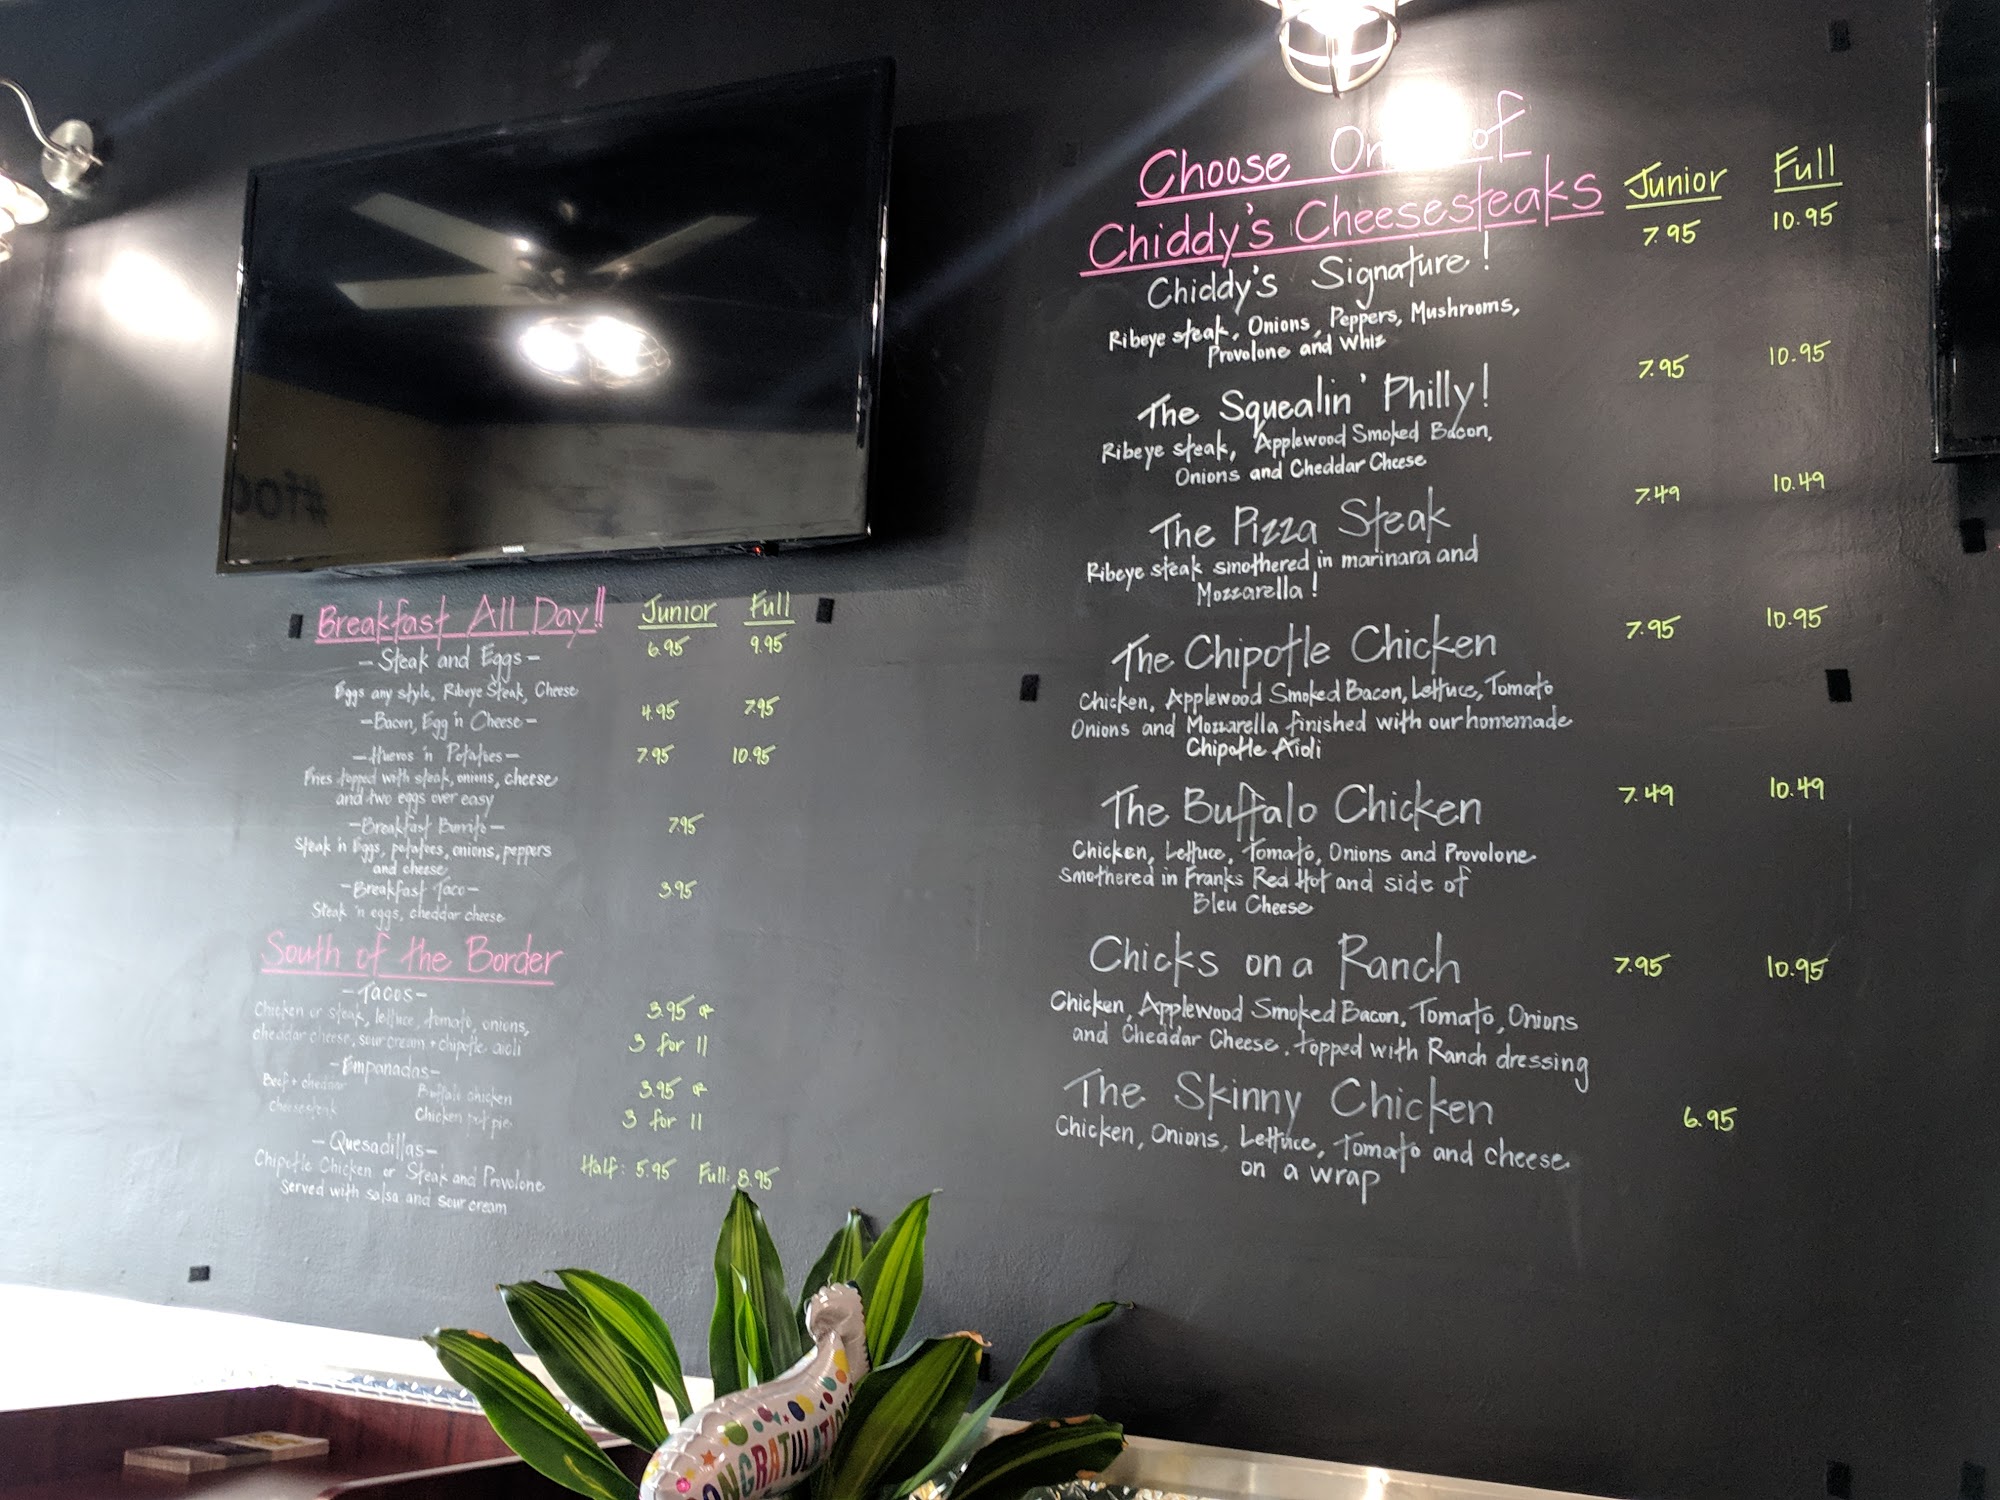 #foo
Breakfast All Day!! Junior Full
-Steak and Eggs- 6.95 9.95
Eggs any style, Ribeye Steak, Cheese
-Bacon, Egg 'n Cheese- 4.95 7.95
-Hueros 'n Potatoes- 7.95 10.95
Fries topped with steak, onions, cheese
and two eggs over easy
-Breakfast Burrito- 7.95
Steak 'n Eggs, potatoes, onions, peppers
and cheese
-Breakfast Taco- 3.95
Steak 'n eggs, cheddar cheese
South of the Border
-Tacos-
Chicken or steak, lettuce, tomato, onions, 3.95 or
cheddar cheese, sour cream + chipotle aioli 3 for 11
-Empanadas-
Beef + cheddar Buffalo chicken 3.95 or
cheesesteak Chicken pot pie 3 for 11
-Quesadillas-
Chipotle Chicken or Steak and Provolone Half: 5.95 Full: 8.95
Served with salsa and sour cream
Choose of
Chiddy's Cheesesteaks Junior Full
Chiddy's Signature! 7.95 10.95
Ribeye steak, Onions, Peppers, Mushrooms,
Provolone and Whiz
The Squealin' Philly! 7.95 10.95
Ribeye steak, Applewood Smoked Bacon,
Onions and Cheddar Cheese
The Pizza Steak 7.49 10.49
Ribeye steak smothered in marinara and
Mozzarella!
The Chipotle Chicken 7.95 10.95
Chicken, Applewood Smoked Bacon, Lettuce, Tomato
Onions and Mozzarella finished with our homemade
Chipotle Aioli
The Buffalo Chicken 7.49 10.49
Chicken, Lettuce, Tomato, Onions and Provolone
smothered in Franks Red Hot and side of
Bleu Cheese
Chicks on a Ranch 7.95 10.95
Chicken, Applewood Smoked Bacon, Tomato, Onions
and Cheddar Cheese. topped with Ranch dressing
The Skinny Chicken 6.95
Chicken, Onions, Lettuce, Tomato and cheese
on a wrap